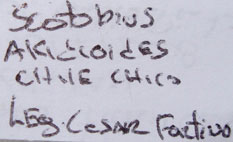 Scotobius
AKidioides
CHILE CHICO
Leg. CESAR Fortino